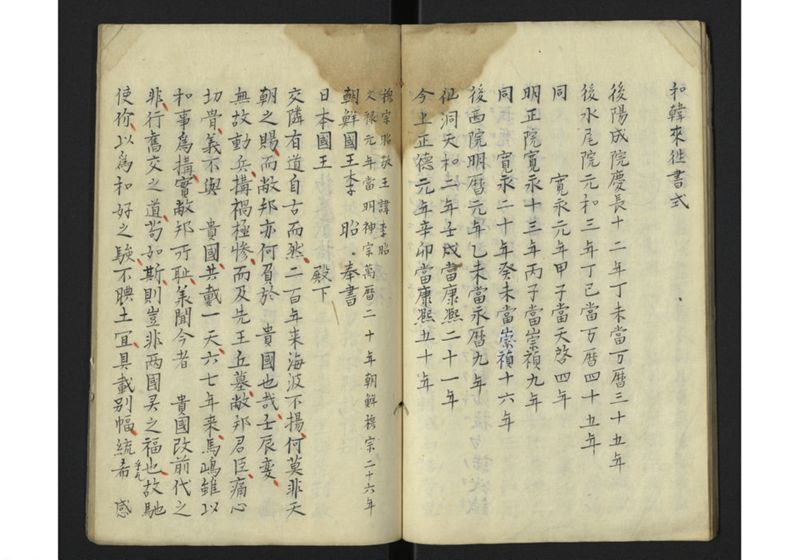 和韓來徃書式
後陽成院慶長十二年丁未當万曆三十五年
後水尾院元和三年丁巳當万曆四十五年
同　寛永元年甲子當天啓四年
明正院寛永十三年丙子當崇禎九年
同　寛永二十年癸未當崇禎十六年
後西院明暦元年乙未當永暦九年
仙洞天和二年壬戌當康熙二十一年
今上正德元年辛卯當康熙五十年
穆宗昭敬王諱李昭
文禄元年當明神宗萬曆二十年朝鮮穆宗二十六年
朝鮮國王李　昭　奉書
日本國王　殿下
交隣有道自古而然二百年来海波不揚何莫非天
朝之賜而敝邦亦何負於　貴國也哉壬辰変
無故動兵搆禍極惨而及先王丘墓敝邦君臣痛心
切貴義不與　貴國共戴一天六七年来馬嶋雖以
和事為搆實敝邦所耻矣聞今者　貴國改前代之
非行舊交之道苟如斯則豈非两國君之福也故馳
使价以為和好之驗不腆土宜具載別幅統希　感